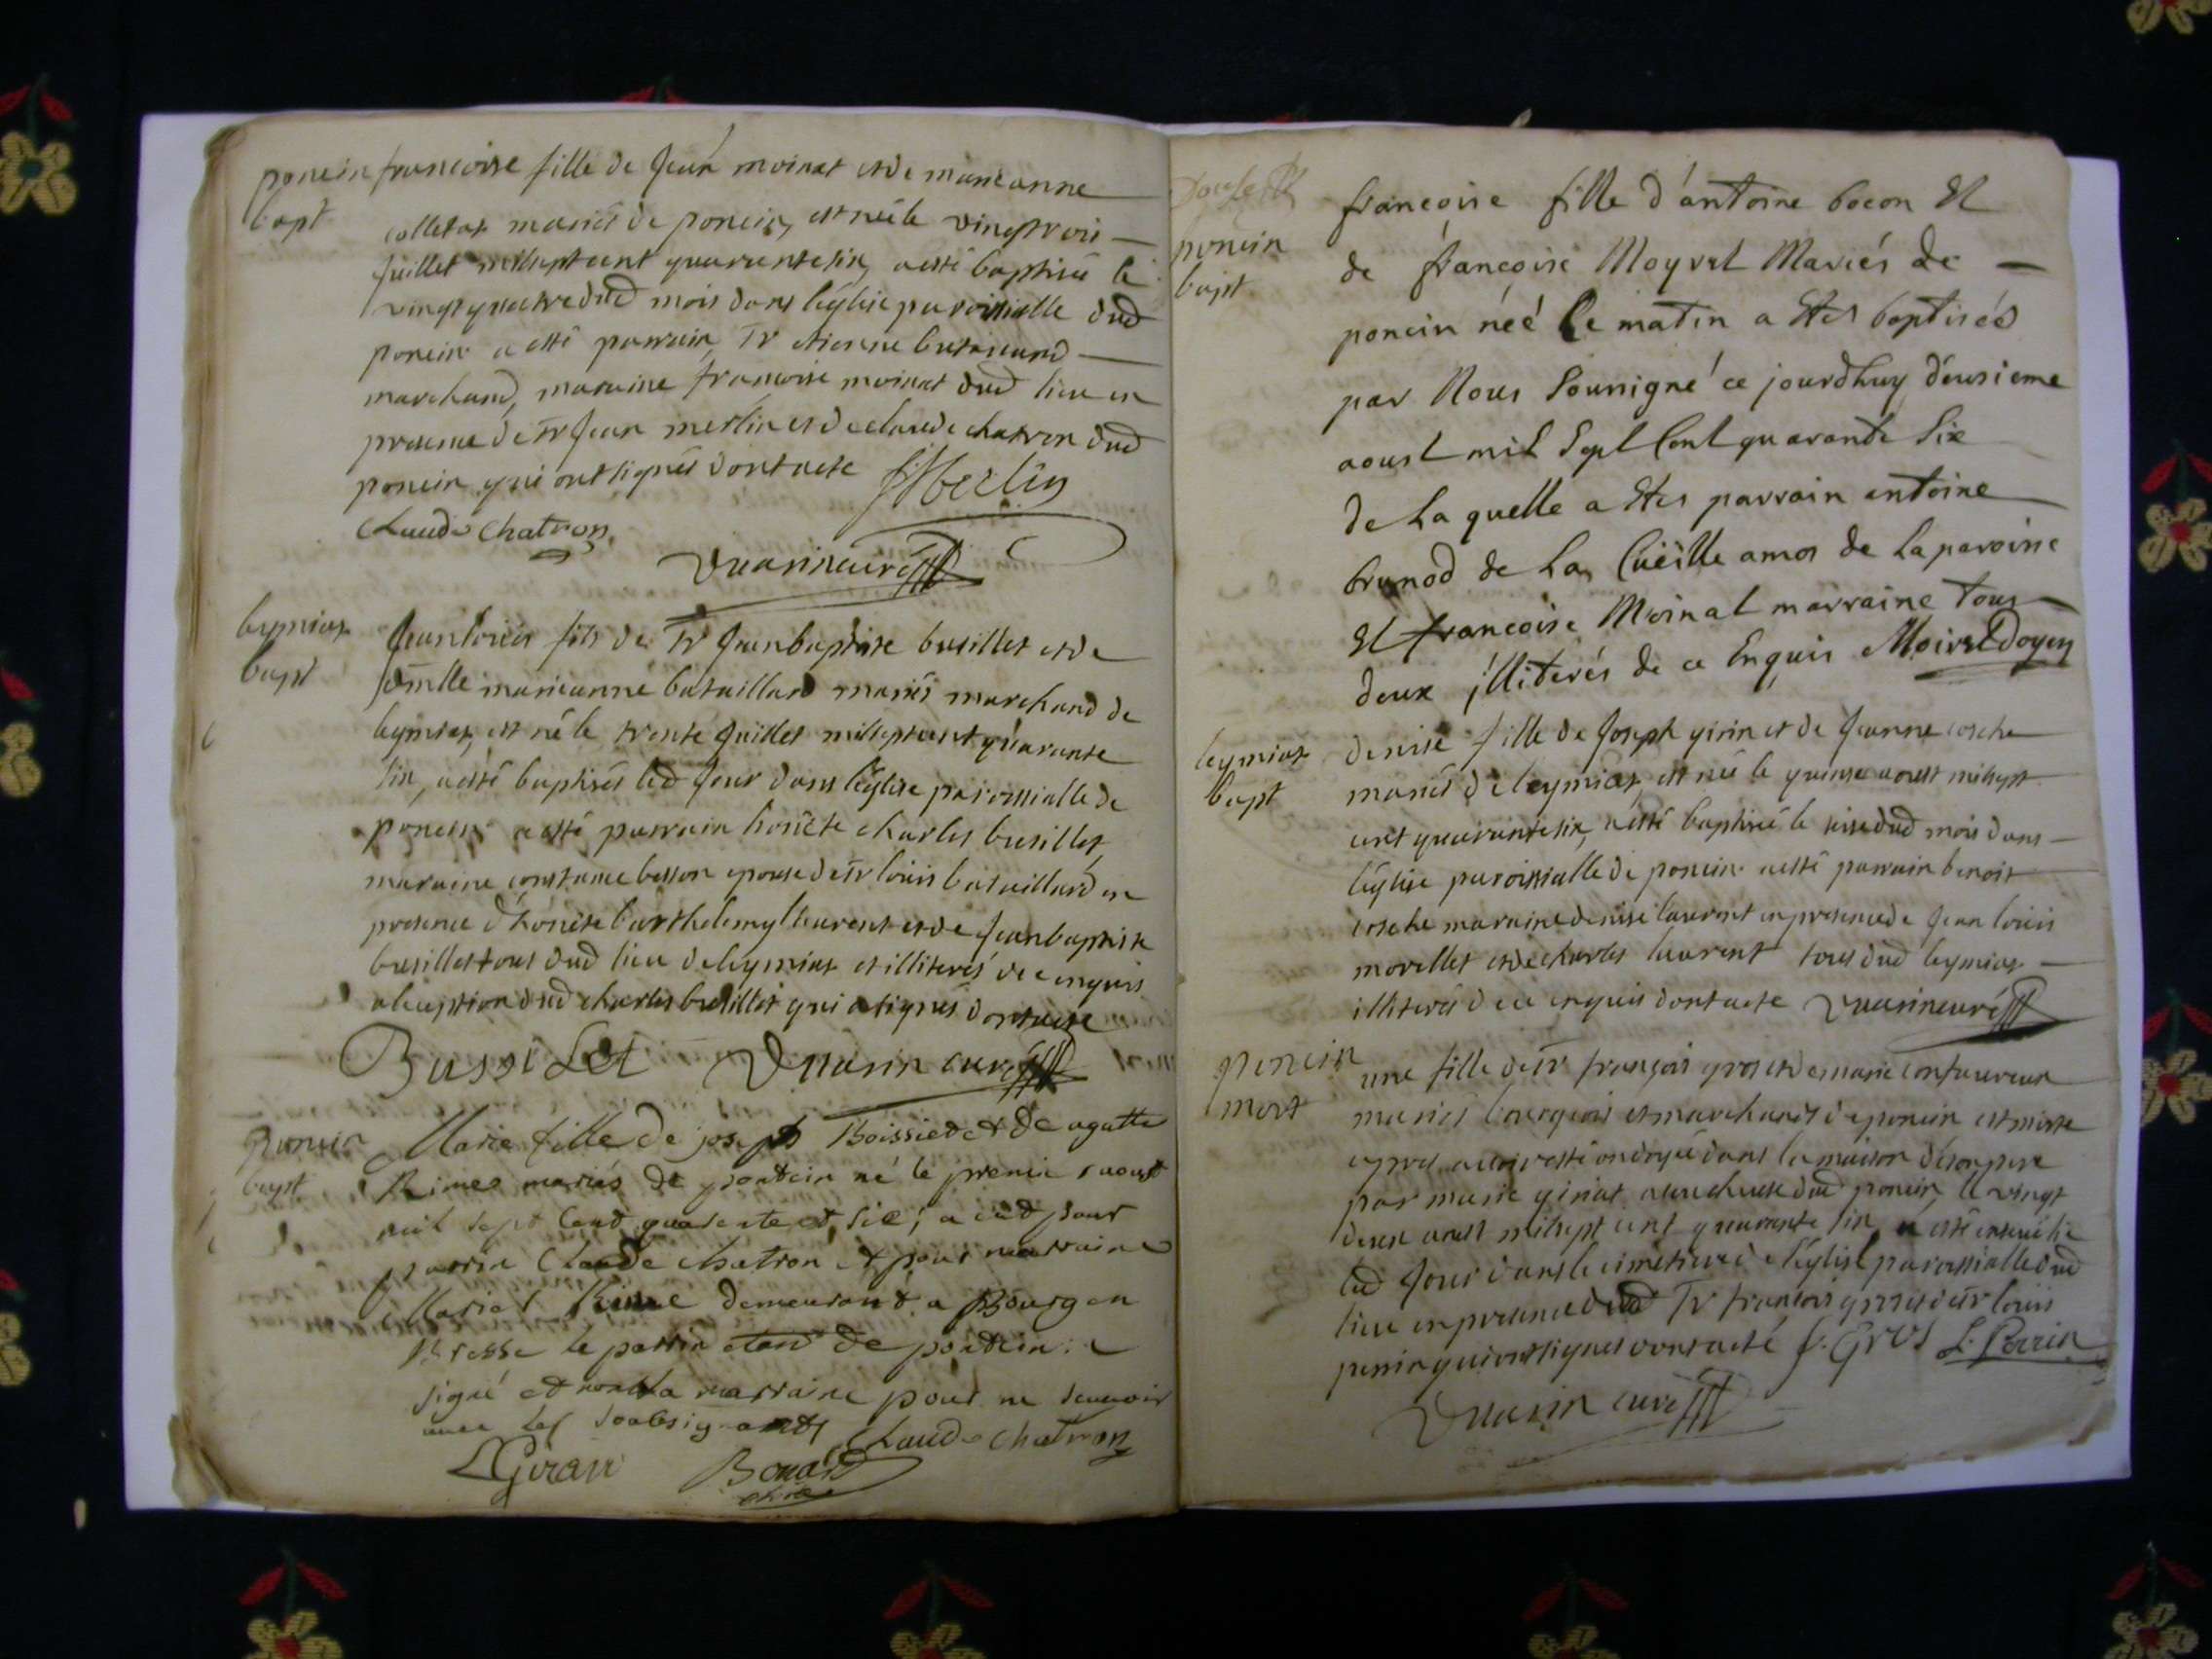 poncin francoise fille de Jean moinat et de marieanne
bapt colletat mariés de poncin, est née le vingt trois
Juillet mil sept cent quarante six, a esté baptisée le
vingt quatre dud mois dans l'église paroissialle dud
poncin a esté parrain, Sr etienne bataillard
marchand, maraine francoise moinat dud lieu en
presence de Sr Jean merlin et de claude chatron dud
poncin qui ont signés dont acte JMerlin
Claude Chatron
Vuarin curé
leymiat Jean louis fils de Sr Jean baptiste busillet et de
bapt dmlle marieanne bataillard mariés marchand de
leymiat, est né le trente Juillet mil sept cent quarante
six, a esté baptisés led Jour dans l'église paroissialle de
poncin a esté parrain honête charles busillet,
maraine constance besson epouse de Sr louis bataillard en
presence d'honête barthelemy laurent et de Jean baptiste
busillet tous dud lieu de leymiat et illiterés de ce enquis
a l'exception dud charles busillet qui a signés dont acte
Bussilet Vuarin curé
poncin Marie fille de joseph Boissiet et de agatte
bapt Rimes mariés de pontcin né le premie raoust
mil sept cent quarente et six, a eut pour
parrin Claude chatron et pour marraine
Mariat Rime demeurant a Bourg en
Bresse le parrin etant de pontcin a
signé et non la marraine pour ne scavoir
avec les soubsignants Claude Chatron
LGirard Bonard
poncin francoise fille d'antoine bocon Et
bapt de françoise Moyret Mariés de
poncin néé Ce matin a Etes baptiséé
par Nous Soussigné ce jourdhuy deusieme
aoust mil Sept Cent quarante Six
de La quelle a Etes parrain antoine
brunod de La Cüeille amos de La paroisse
Et francoise Moinat marraine tous
deux illiterés de ce Enquis Moiret Doyen
leymiat denise fille de Joseph girin et de Jeanne cosche
bapt mariés de leymiat, est née le quinse aoust mil sept
cent quarante six, a esté baptisée le seise dud mois dans
l'église paroissialle de poncin a esté parrain benoit
cosche maraine denise laurent en presence de Jean louis
morellet et de charles laurent tous dud leymiat
illiterés de ce enquis dont acte Vuarin curé
poncin une fille de Sr françois gros et de marie confavreux
mort mariés bourgeois et marchands de poncin est morte
apres avoir esté ondoyée dans la maison de son pere
par marie giriat accoucheuse dud poncin, le vingt
deux aoust mil sept cent quarante six a esté ensevelie
led Jour dans le cimetiere de l'église paroissialle dud
lieu en presence dud Sr francois gros et de Sr louis
perrin qui ont signés dont acte f. Gros L. Perrin
Vuarin curé